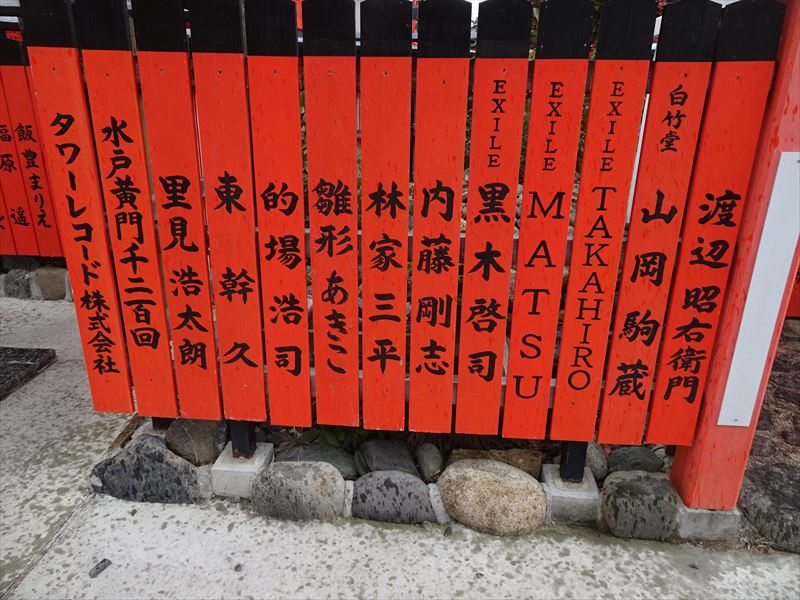 渡辺昭右衛門
白竹堂
山岡駒蔵
EXILE
TAKAHIRO
EXILE
MATSU
EXILE
黒木啓司
内藤剛志
林家三平
雛形あきこ
的場浩司
東幹久
里見浩太朗
水戸黄門千二百回
タワーレコード株式会社
飯豊まりえ
福原遥